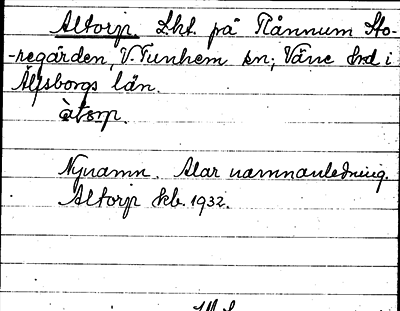 Altorp. Lht. på Flännum Sto-
-regården, V. Tunhem sn; Väne hd i
Älvsborgs län.
àtorp.
Nynamn. Alar namnanledning.
Altorp kb. 1932.